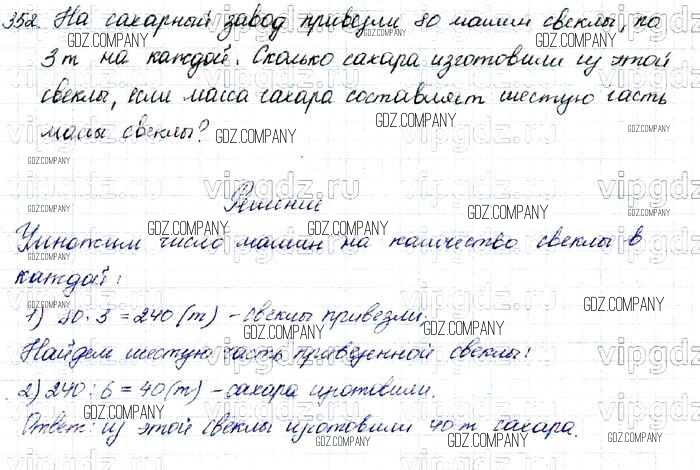 352. На сахарный завод привезли 80 машин свеклы, по
3 т на каждой. Сколько сахара изготовили из этой
свеклы, если масса сахара составляет шестую часть
массы свеклы?
Решение
Умножим число машин на количество свеклы в
каждой:
1) 80 · 3 = 240 (т) - свеклы привезли.
Найдем шестую часть привезенной свеклы:
2) 240 : 6 = 40 (т) - сахара изготовили.
Ответ: из этой свеклы изготовили 40 т сахара.
GDZ.COMPANY
vipgdz.ru